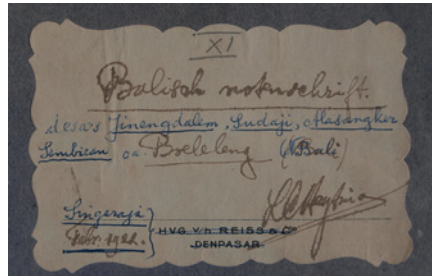 XI
Balisch notenschrift.
desa's Jinengdalem, Sudaji, Alasangker
Sembiran oa. Boeleleng (N Bali)
Singaraja
Febr. 1921.
HVG v/h REISS & Co
DENPASAR